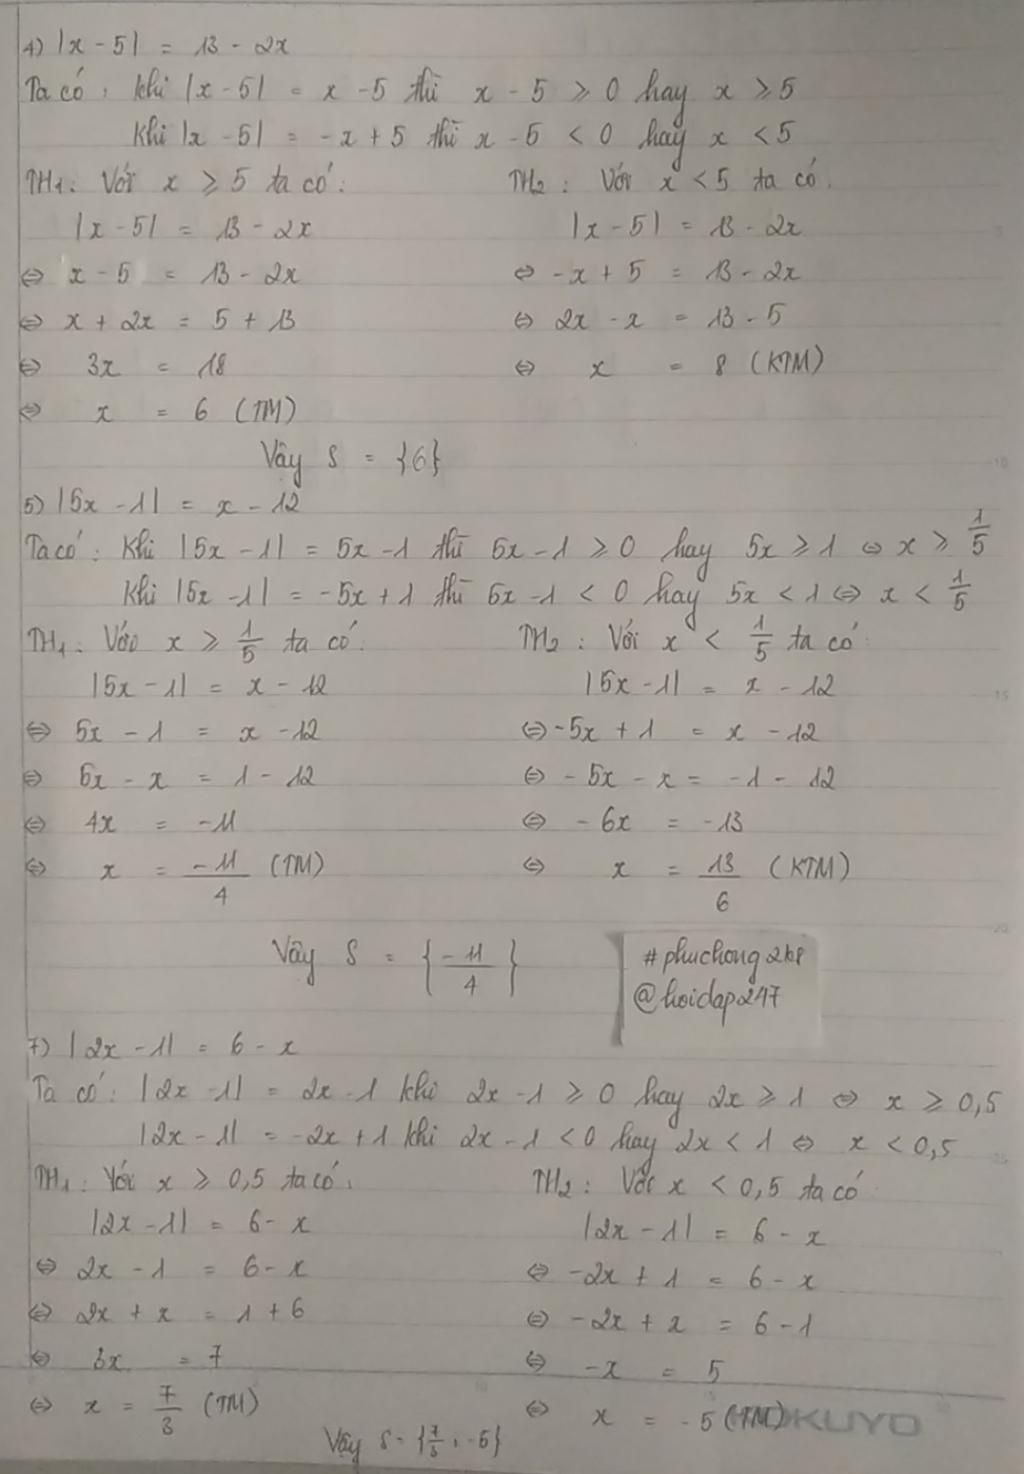 4) |x - 5| = 13 - 2x
Ta có: Khi |x - 5| = x - 5 thì x - 5 ≥ 0 hay x ≥ 5
Khi |x - 5| = -x + 5 thì x - 5 < 0 hay x < 5
TH1: Với x ≥ 5 ta có:
|x - 5| = 13 - 2x
⇔ x - 5 = 13 - 2x
⇔ x + 2x = 5 + 13
⇔ 3x = 18
⇔ x = 6 (TM)
TH2: Với x < 5 ta có:
|x - 5| = 13 - 2x
⇔ -x + 5 = 13 - 2x
⇔ 2x - x = 13 - 5
⇔ x = 8 (KTM)
Vậy S = {6}
5) |5x - 1| = x - 12
Ta có: Khi |5x - 1| = 5x - 1 thì 5x - 1 ≥ 0 hay 5x ≥ 1 ⇔ x ≥ 1/5
Khi |5x - 1| = -5x + 1 thì 5x - 1 < 0 hay 5x < 1 ⇔ x < 1/5
TH1: Với x ≥ 1/5 ta có:
|5x - 1| = x - 12
⇔ 5x - 1 = x - 12
⇔ 5x - x = 1 - 12
⇔ 4x = -11
⇔ x = -11/4 (TM)
TH2: Với x < 1/5 ta có:
|5x - 1| = x - 12
⇔ -5x + 1 = x - 12
⇔ -5x - x = -1 - 12
⇔ -6x = -13
⇔ x = 13/6 (KTM)
Vậy S = {-11/4}
#phuchong2k8
@hoidap247
7) |2x - 1| = 6 - x
Ta có: |2x - 1| = 2x - 1 khi 2x - 1 ≥ 0 hay 2x ≥ 1 ⇔ x ≥ 0,5
|2x - 1| = -2x + 1 khi 2x - 1 < 0 hay 2x < 1 ⇔ x < 0,5
TH1: Với x ≥ 0,5 ta có:
|2x - 1| = 6 - x
⇔ 2x - 1 = 6 - x
⇔ 2x + x = 1 + 6
⇔ 3x = 7
⇔ x = 7/3 (TM)
TH2: Với x < 0,5 ta có
|2x - 1| = 6 - x
⇔ -2x + 1 = 6 - x
⇔ -2x + x = 6 - 1
⇔ -x = 5
⇔ x = -5 (TM)
Vậy S = {7/3; -5}